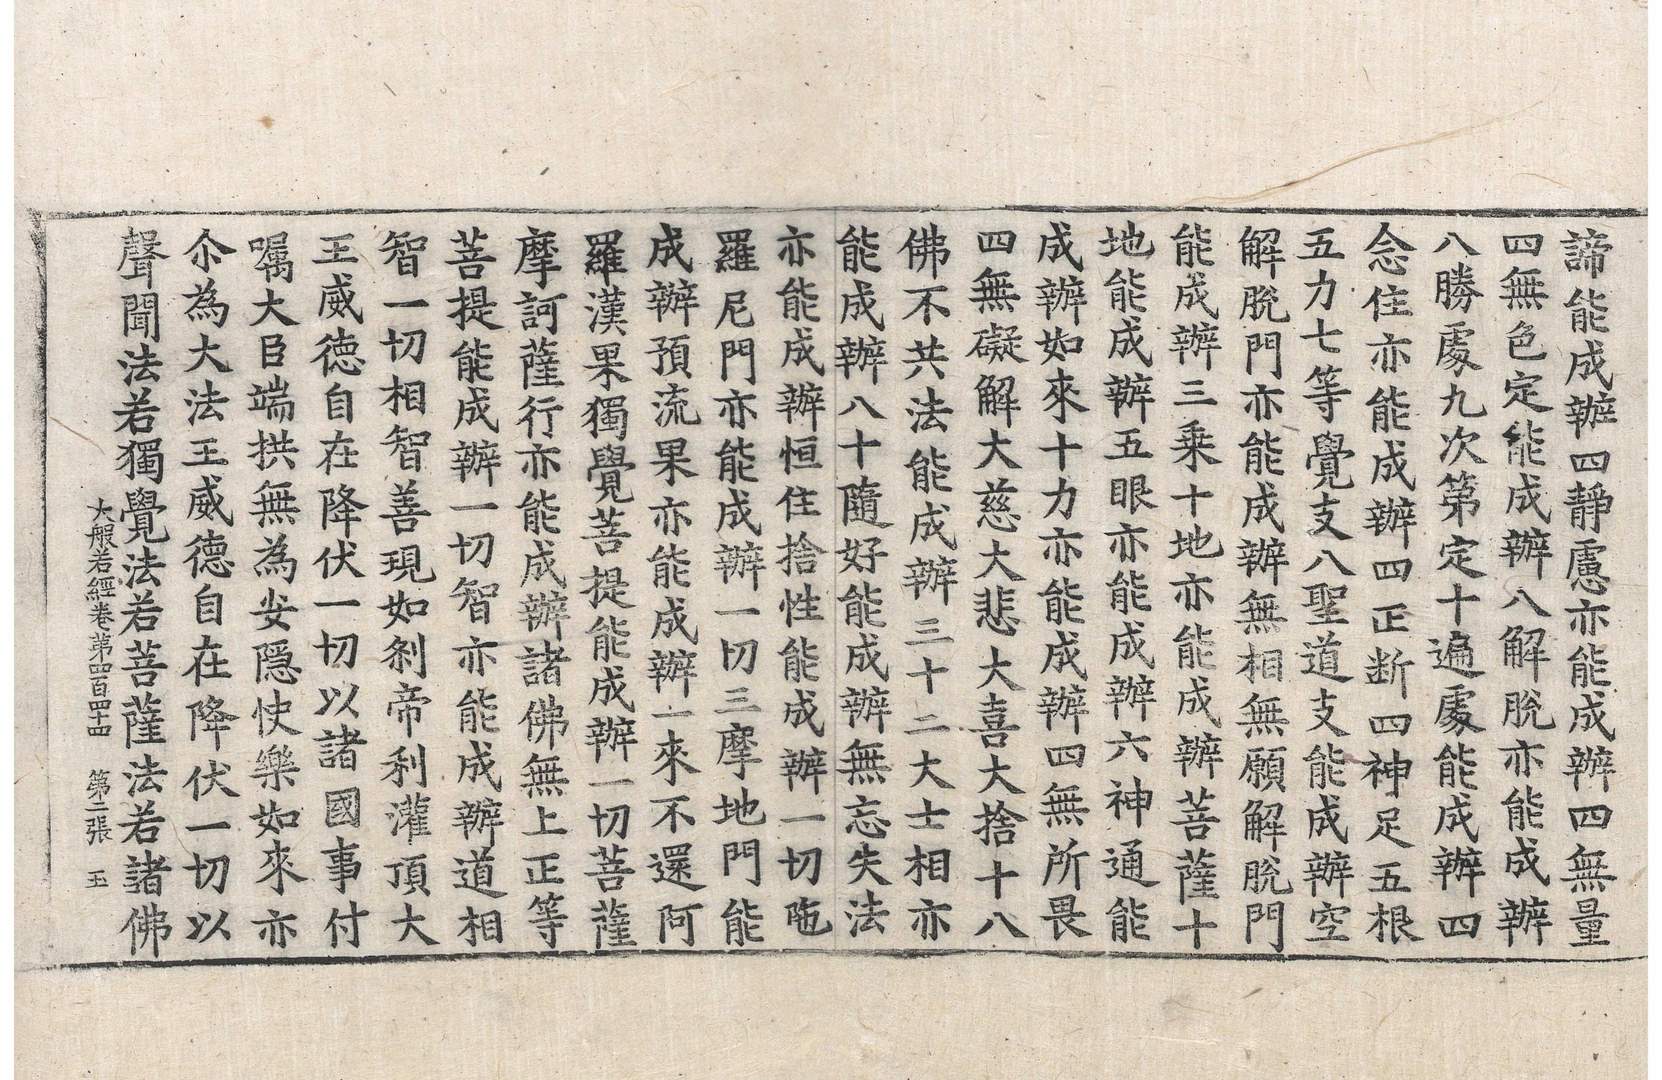 諦能成辦四靜慮亦能成辦四無量
四無色定能成辦八解脫亦能成辦
八勝處九次第定十遍處能成辦四
念住亦能成辦四正断四神足五根
五力七等覺支八聖道支能成辦空
解脫門亦能成辦無相無願解脫門
能成辦三乗十地亦能成辦菩薩十
地能成辦五眼亦能成辦六神通能
成辦如來十力亦能成辦四無所畏
四無礙解大慈大悲大喜大捨十八
佛不共法能成辦三十二大士相亦
能成辦八十隨好能成辦無忘失法
亦能成辦恒住捨性能成辦一切陁
羅尼門亦能成辦一切三摩地門能
成辦預流果亦能成辦一來不還阿
羅漢果獨覺菩提能成辦一切菩薩
摩訶薩行亦能成辦諸佛無上正等
菩提能成辦一切智亦能成辦道相
智一切相智善現如剎帝利灌頂大
王威徳自在降伏一切以諸國事付
嘱大臣端拱無為安隱快樂如來亦
尒為大法王威德自在降伏一切以
聲聞法若獨覺法若菩薩法若諸佛
大般若經卷第四百四十四 第二張 玉